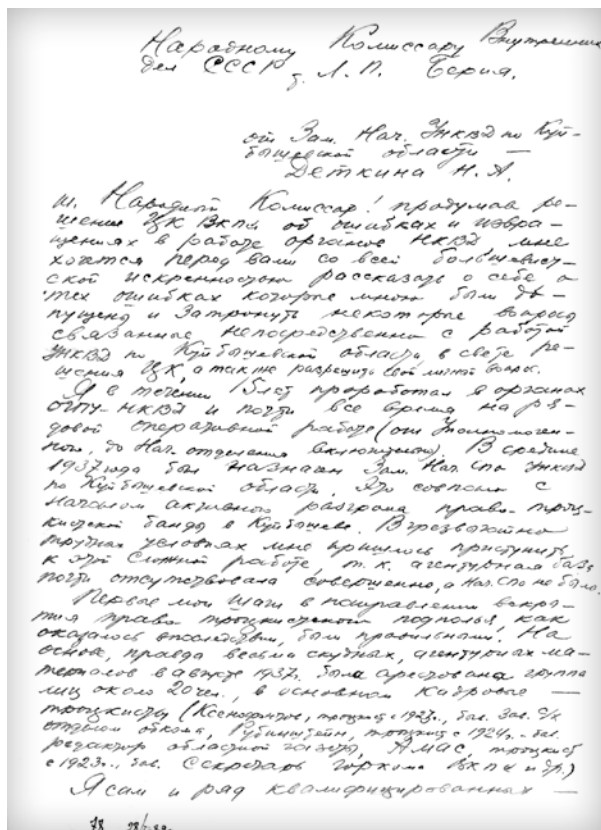 Народному Комиссару Внутренних
дел СССР
т. Л. П. Берия.
от Зам. Нач. УНКВД по Куй-
бышевской области —
Деткина Н. А.
т. Народный Комиссар! продумав ре-
шение ЦК ВКП(б) об ошибках и извра-
щениях в работе органов НКВД, мне
хочется перед вами со всей большевист-
ской искренностью рассказать о себе о
тех ошибках которые мною были до-
пущены и затронуть некоторые вопросы
связанные непосредственно с работой
УНКВД по Куйбышевской области, в свете ре-
шения ЦК, а так же разрешить свой личный вопрос.
Я в течении 15 лет проработал в органах
ОГПУ-НКВД и почти все время на ря-
довой оперативной работе (от Уполномочен-
ного, до Нач. отделения включительно). В средине
1937 года был назначен Зам. Нач. СПО УНКВД
по Куйбышевской области. Это совпало с
началом активного разгрома право-троц-
кистской банды в Куйбышеве. В чрезвычайно
трудных условиях мне пришлось приступить
к этой сложной работе, т. к. агентурная база
почти отсутствовала совершенно, а Нач. СПО не было.
Первые мои шаги в направлении вскры-
тия право троцкистского подполья, как
оказалось впоследствии, были правильными. На
основе, правда весьма скудных, агентурных ма-
териалов в августе 1937г. была арестована группа
лиц около 20 чел., в основном кадровые —
троцкисты (Ксенофонтов, троцкист с 1923г., быв. Зав. С/х
отделом обкома, Рубинштейн, троцкист с 1924г. - быв.
редактор областной газеты, Амас, троцкист
с 1923г., быв. Секретарь горкома ВКП(б) и др.)
Я сам и ряд квалифицированных —
78